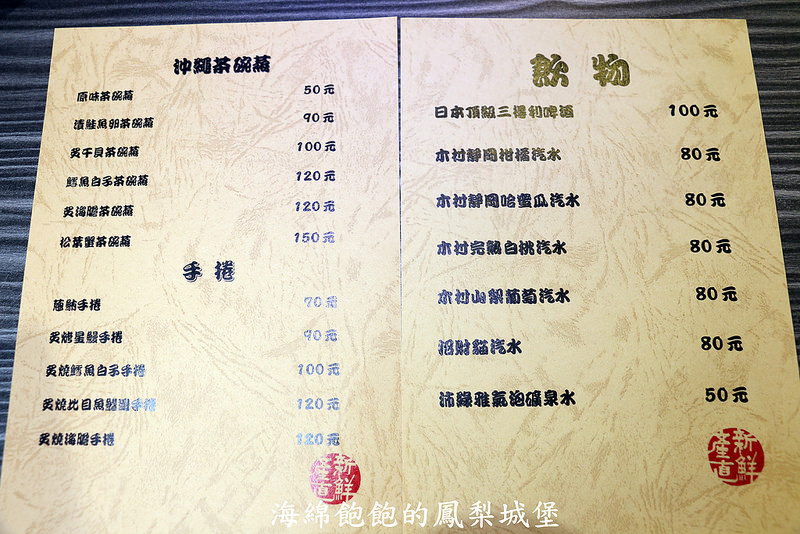 沖繩茶碗蒸
原味茶碗蒸 50元
漬鮭魚卵茶碗蒸 90元
炙干貝茶碗蒸 100元
鱈魚白子茶碗蒸 120元
炙海膽茶碗蒸 120元
松葉蟹茶碗蒸 150元
手捲
蔥鮪手捲 70元
炙烤星鰻手捲 90元
炙燒鱈魚白子手捲 100元
炙燒比目魚鰭邊手捲 120元
炙燒海膽手捲 120元
新鮮
產直
飲物
日本頂級三得利啤酒 100元
木村靜岡柑橘汽水 80元
木村靜岡哈蜜瓜汽水 80元
木村完熟白桃汽水 80元
木村山梨葡萄汽水 80元
招財貓汽水 80元
沛綠雅氣泡礦泉水 50元
新鮮
產直
海綿飽飽的鳳梨城堡